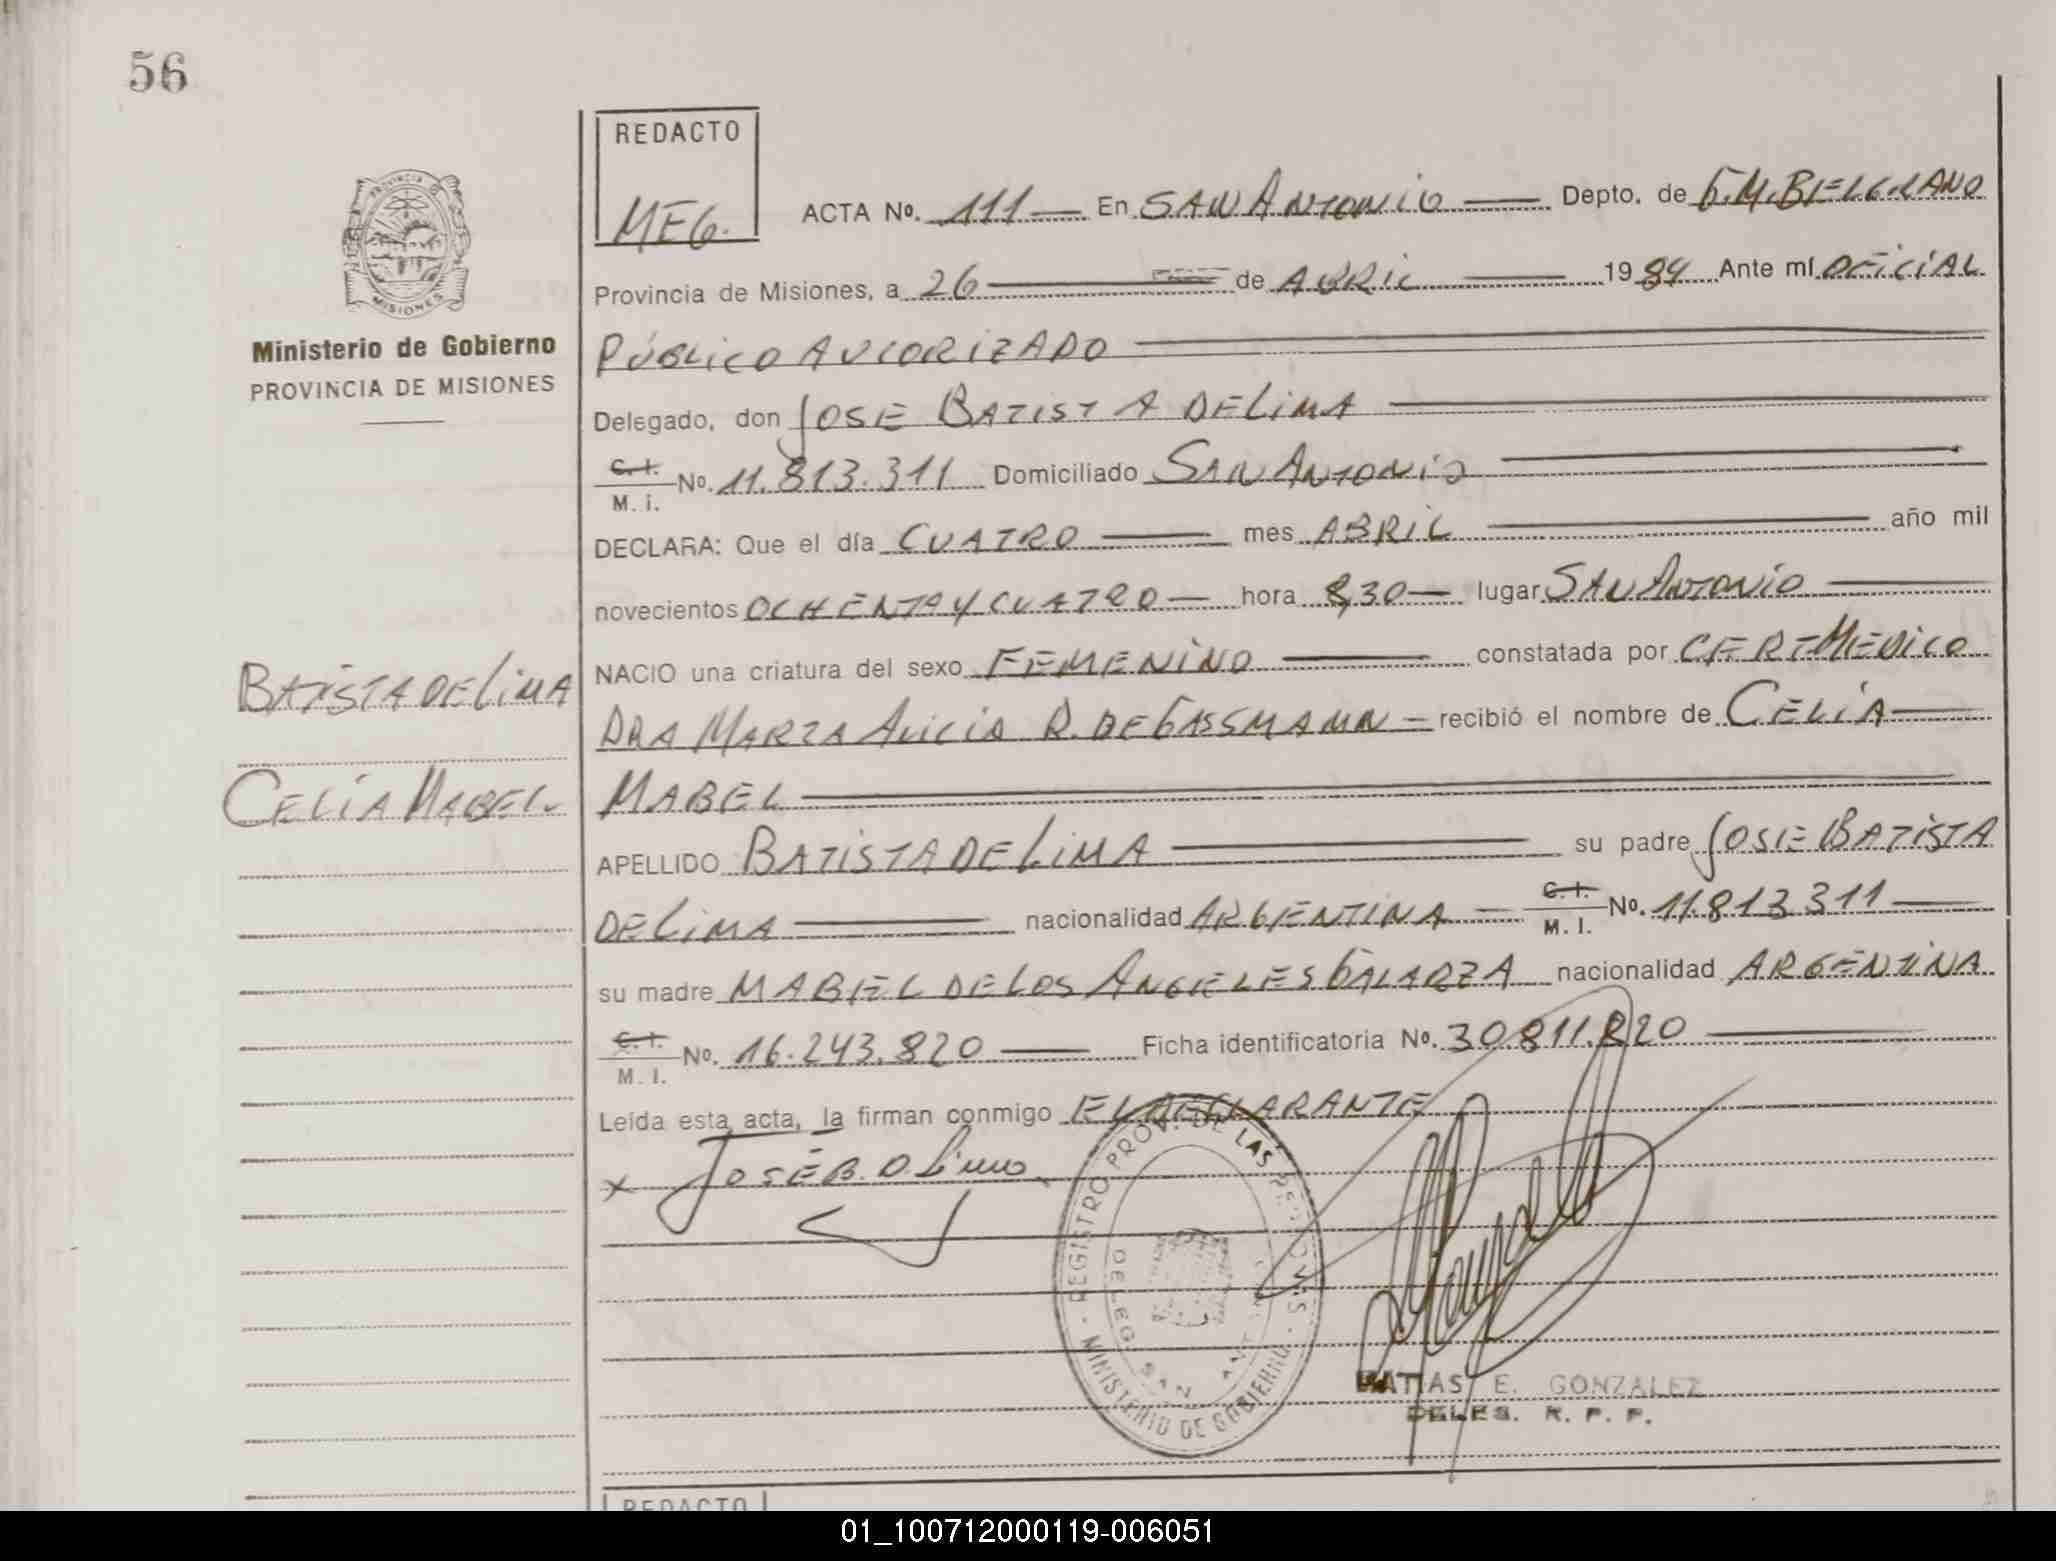 56
REDACTO
MEG.
ACTA No. 111 En SAN ANTONIO Depto. de G.M.BELGRANO
Provincia de Misiones, a 26 de ABRIL 1984 Ante mí OFICIAL
PÚBLICO AUTORIZADO
Delegado, don JOSE BATISTA DELIMA
C. I. M. i. No. 11.813.311 Domiciliado SAN ANTONIO
DECLARA: Que el día CUATRO mes ABRIL año mil
novecientos OCHENTA Y CUATRO hora 8,30 lugar SAN ANTONIO
NACIO una criatura del sexo FEMENINO constatada por CERT MEDICO
DRA MARZA ALICIA R. DE GASSMANN recibió el nombre de CELIA
MABEL
APELLIDO BATISTA DE LIMA su padre JOSE BATISTA
DE LIMA nacionalidad ARGENTINA C. I. M. I. No. 11.813.311
su madre MABEL DE LOS ANGELES GALARZA nacionalidad ARGENTINA
C. I. M. I. No. 16.243.820 Ficha identificatoria No. 30.811.820
Leída esta acta, la firman conmigo EL DECLARANTE
x JOSÉ B. D Lima
PROVINCIA DE
MISIONES
Ministerio de Gobierno
PROVINCIA DE MISIONES
BATISTA DE LIMA
CELIA MABEL
REGISTRO PROV. DE LAS PERSONAS
DELEG. SAN ANTONIO
MINISTERIO DE GOBIERNO
MATIAS E. GONZALEZ
DELEG. R. P. P.
REDACTO
01_100712000119-006051